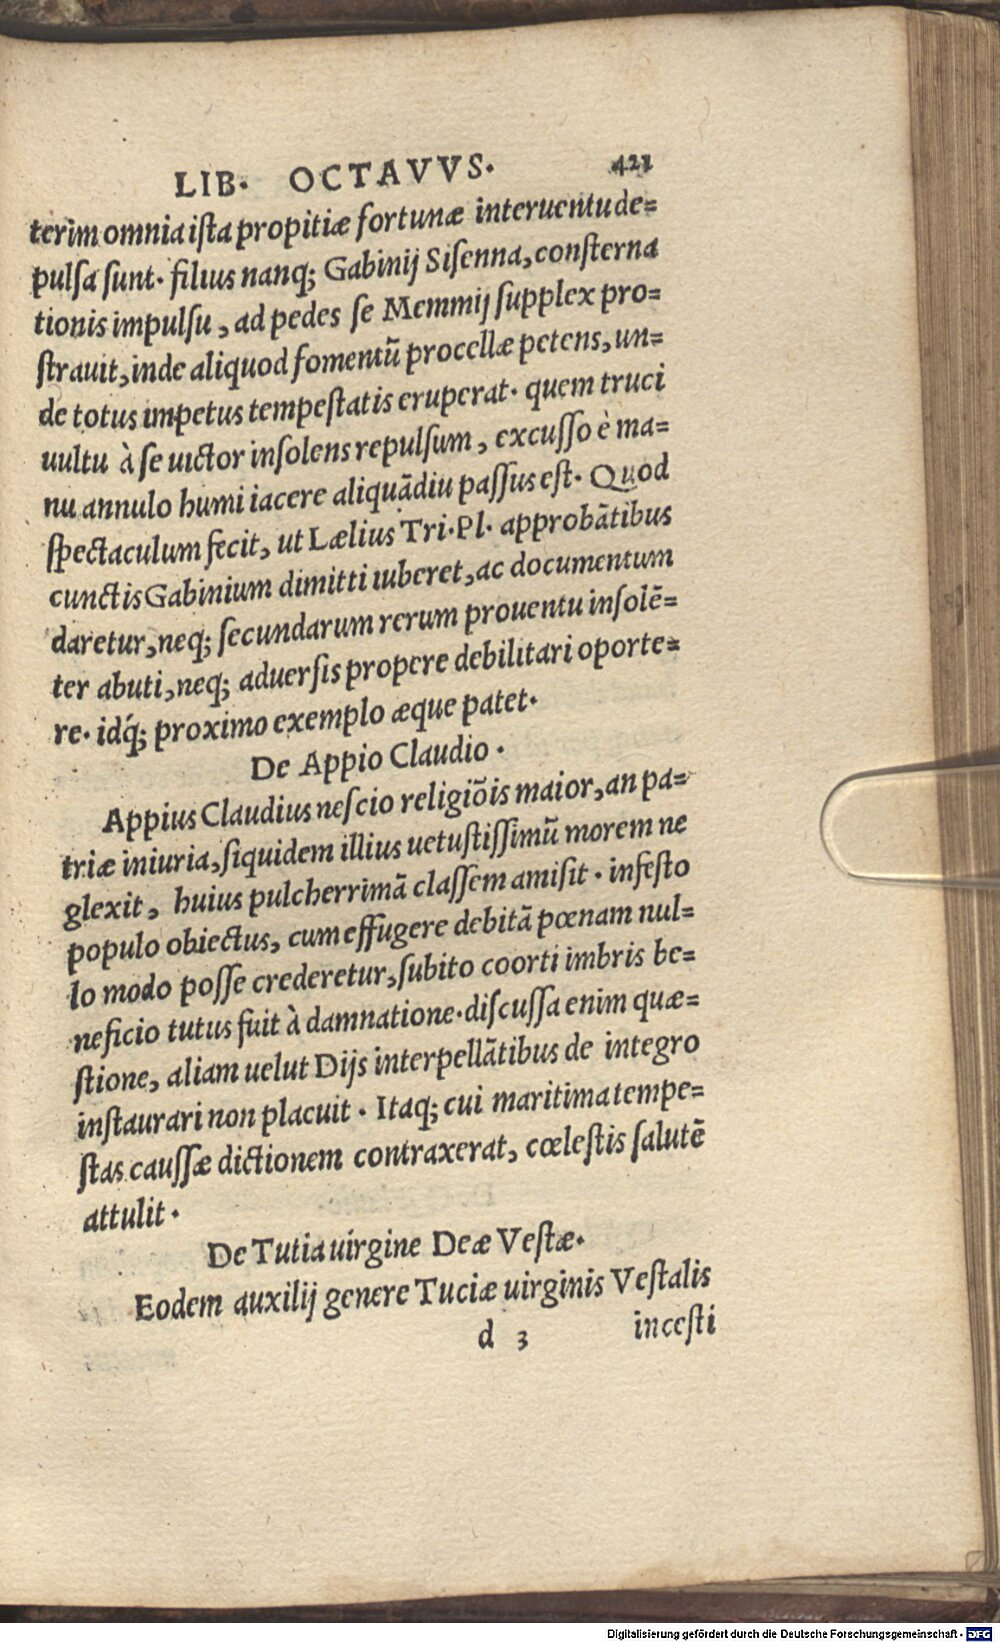 LIB. OCTAVVS. 421
terim omnia ista propitiæ fortunæ interuentu de=
pulsa sunt. filius nanq; Gabinij Sisenna, consterna
tionis impulsu, ad pedes se Memmij supplex pro=
strauit, inde aliquod fomentũ procellæ petens, un=
de totus impetus tempestatis eruperat. quem truci
uultu à se uictor insolens repulsum, excusso è ma=
nu annulo humi iacere aliquãdiu passus est. Quod
spectaculum fecit, ut Lælius Tri. Pl. approbãtibus
cunctis Gabinium dimitti iuberet, ac documentum
daretur, neq; secundarum rerum prouentu insolẽ=
ter abuti, neq; aduersis propere debilitari oporte=
re. idq́; proximo exemplo æque patet.
De Appio Claudio.
Appius Claudius nescio religiõis maior, an pa=
triæ iniuria, siquidem illius uetustissimũ morem ne
glexit, huius pulcherrimã classem amisit. infesto
populo obiectus, cum effugere debitã pœnam nul=
lo modo posse crederetur, subito coorti imbris be=
neficio tutus fuit à damnatione. discussa enim quæ=
stione, aliam uelut Dijs interpellãtibus de integro
instaurari non placuit. Itaq; cui maritima tempe=
stas caussæ dictionem contraxerat, cœlestis salutẽ
attulit.
De Tutia uirgine Deæ Vestæ.
Eodem auxilij genere Tuciæ uirginis Vestalis
d 3 incesti
Digitalisierung gefördert durch die Deutsche Forschungsgemeinschaft - DFG